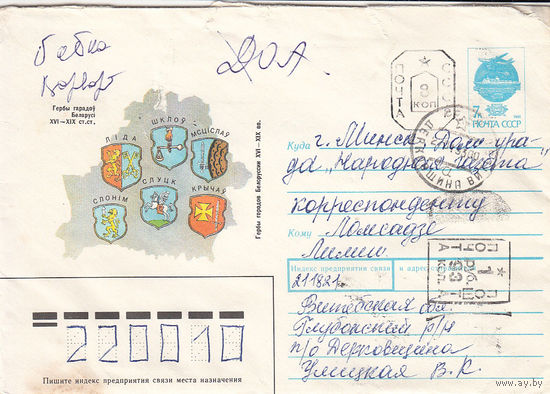 Бабка
ДОА.
Гербы гарадоў
Беларусі
XVI—XIX ст.ст.
ЛІДА
ШКЛОЎ
МСЦІСЛАЎ
СЛОНІМ
СЛУЦК
КРЫЧАЎ
Гербы городов Белоруссии XVI—XIX вв.
ПОЧТА
СССР
3
КОП
7к
ПОЧТА СССР
Куда
г. Минск Дом ура-
да, "Народная газета"
корреспонденту
Ломсадзе
Лилии
Индекс предприятия связи и адрес
211821
Витебская обл.
Глубокский р/н
п/о Дерковщина
Улицкая В. К.
220010
Пишите индекс предприятия связи места назначения
ay.by